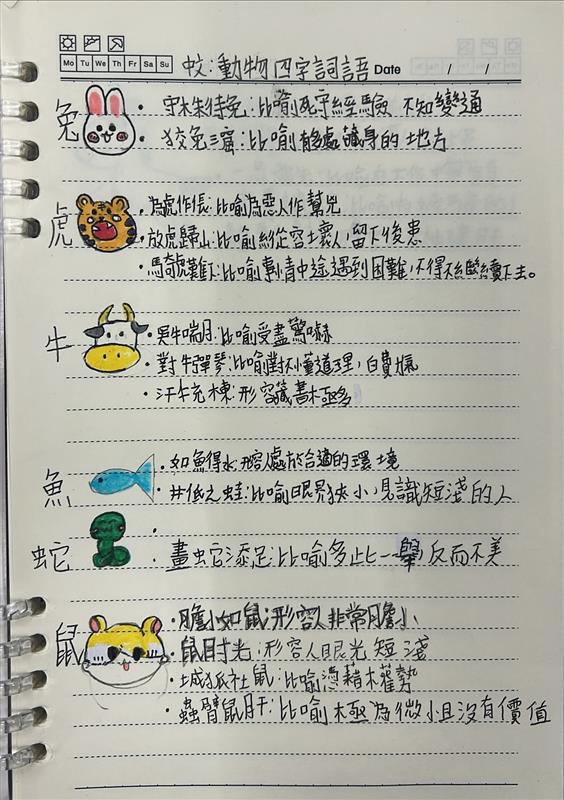 Mo Tu We Th Fr Sa Su
蚊:動物四字詞語 Date / /
兔
• 守株待兔:比喻死守經驗 不知變通
• 狡兔三窟:比喻有多處藏身的地方
虎
• 為虎作倀:比喻為惡人作幫兇
• 放虎歸山:比喻縱容壞人,留下後患
• 騎虎難下:比喻事情中途遇到困難,不得不繼續下去。
牛
• 吳牛喘月:比喻受盡驚嚇
• 對牛彈琴:比喻對不懂道理,白費氣
• 汗牛充棟:形容藏書極多
魚
• 如魚得水:形容人處於合適的環境
• 井低之蛙:比喻眼界狹小,見識短淺的人
蛇
•
• 畫蛇添足:比喻多此一舉 反而不美
鼠
• 膽小如鼠:形容人非常膽小
• 鼠目寸光:形容人眼光短淺
• 城狐社鼠:比喻憑藉權勢
• 蟲臂鼠肝:比喻極為微小且沒有價值